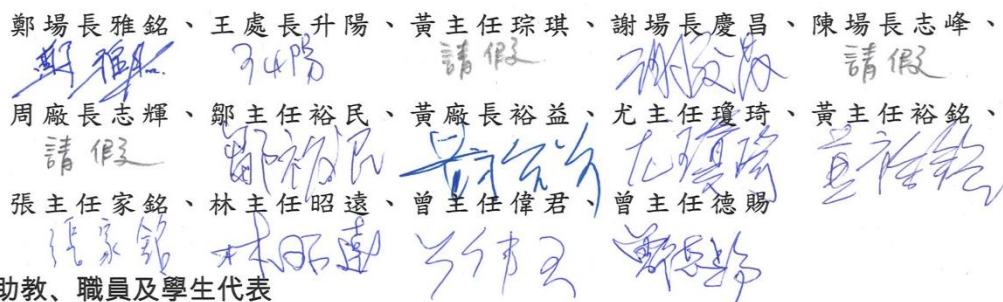 鄭場長雅銘、王處長升陽、黃主任琮琪、謝場長慶昌、陳場長志峰、
鄭雅銘 王升陽 請假 謝慶昌 請假
周廠長志輝、鄒主任裕民、黃廠長裕益、尤主任瓊琦、黃主任裕銘、
請假 鄒裕民 黃裕益 尤瓊琦 黃裕銘
張主任家銘、林主任昭遠、曾主任偉君、曾主任德賜
張家銘 林昭遠 曾偉君
助教、職員及學生代表